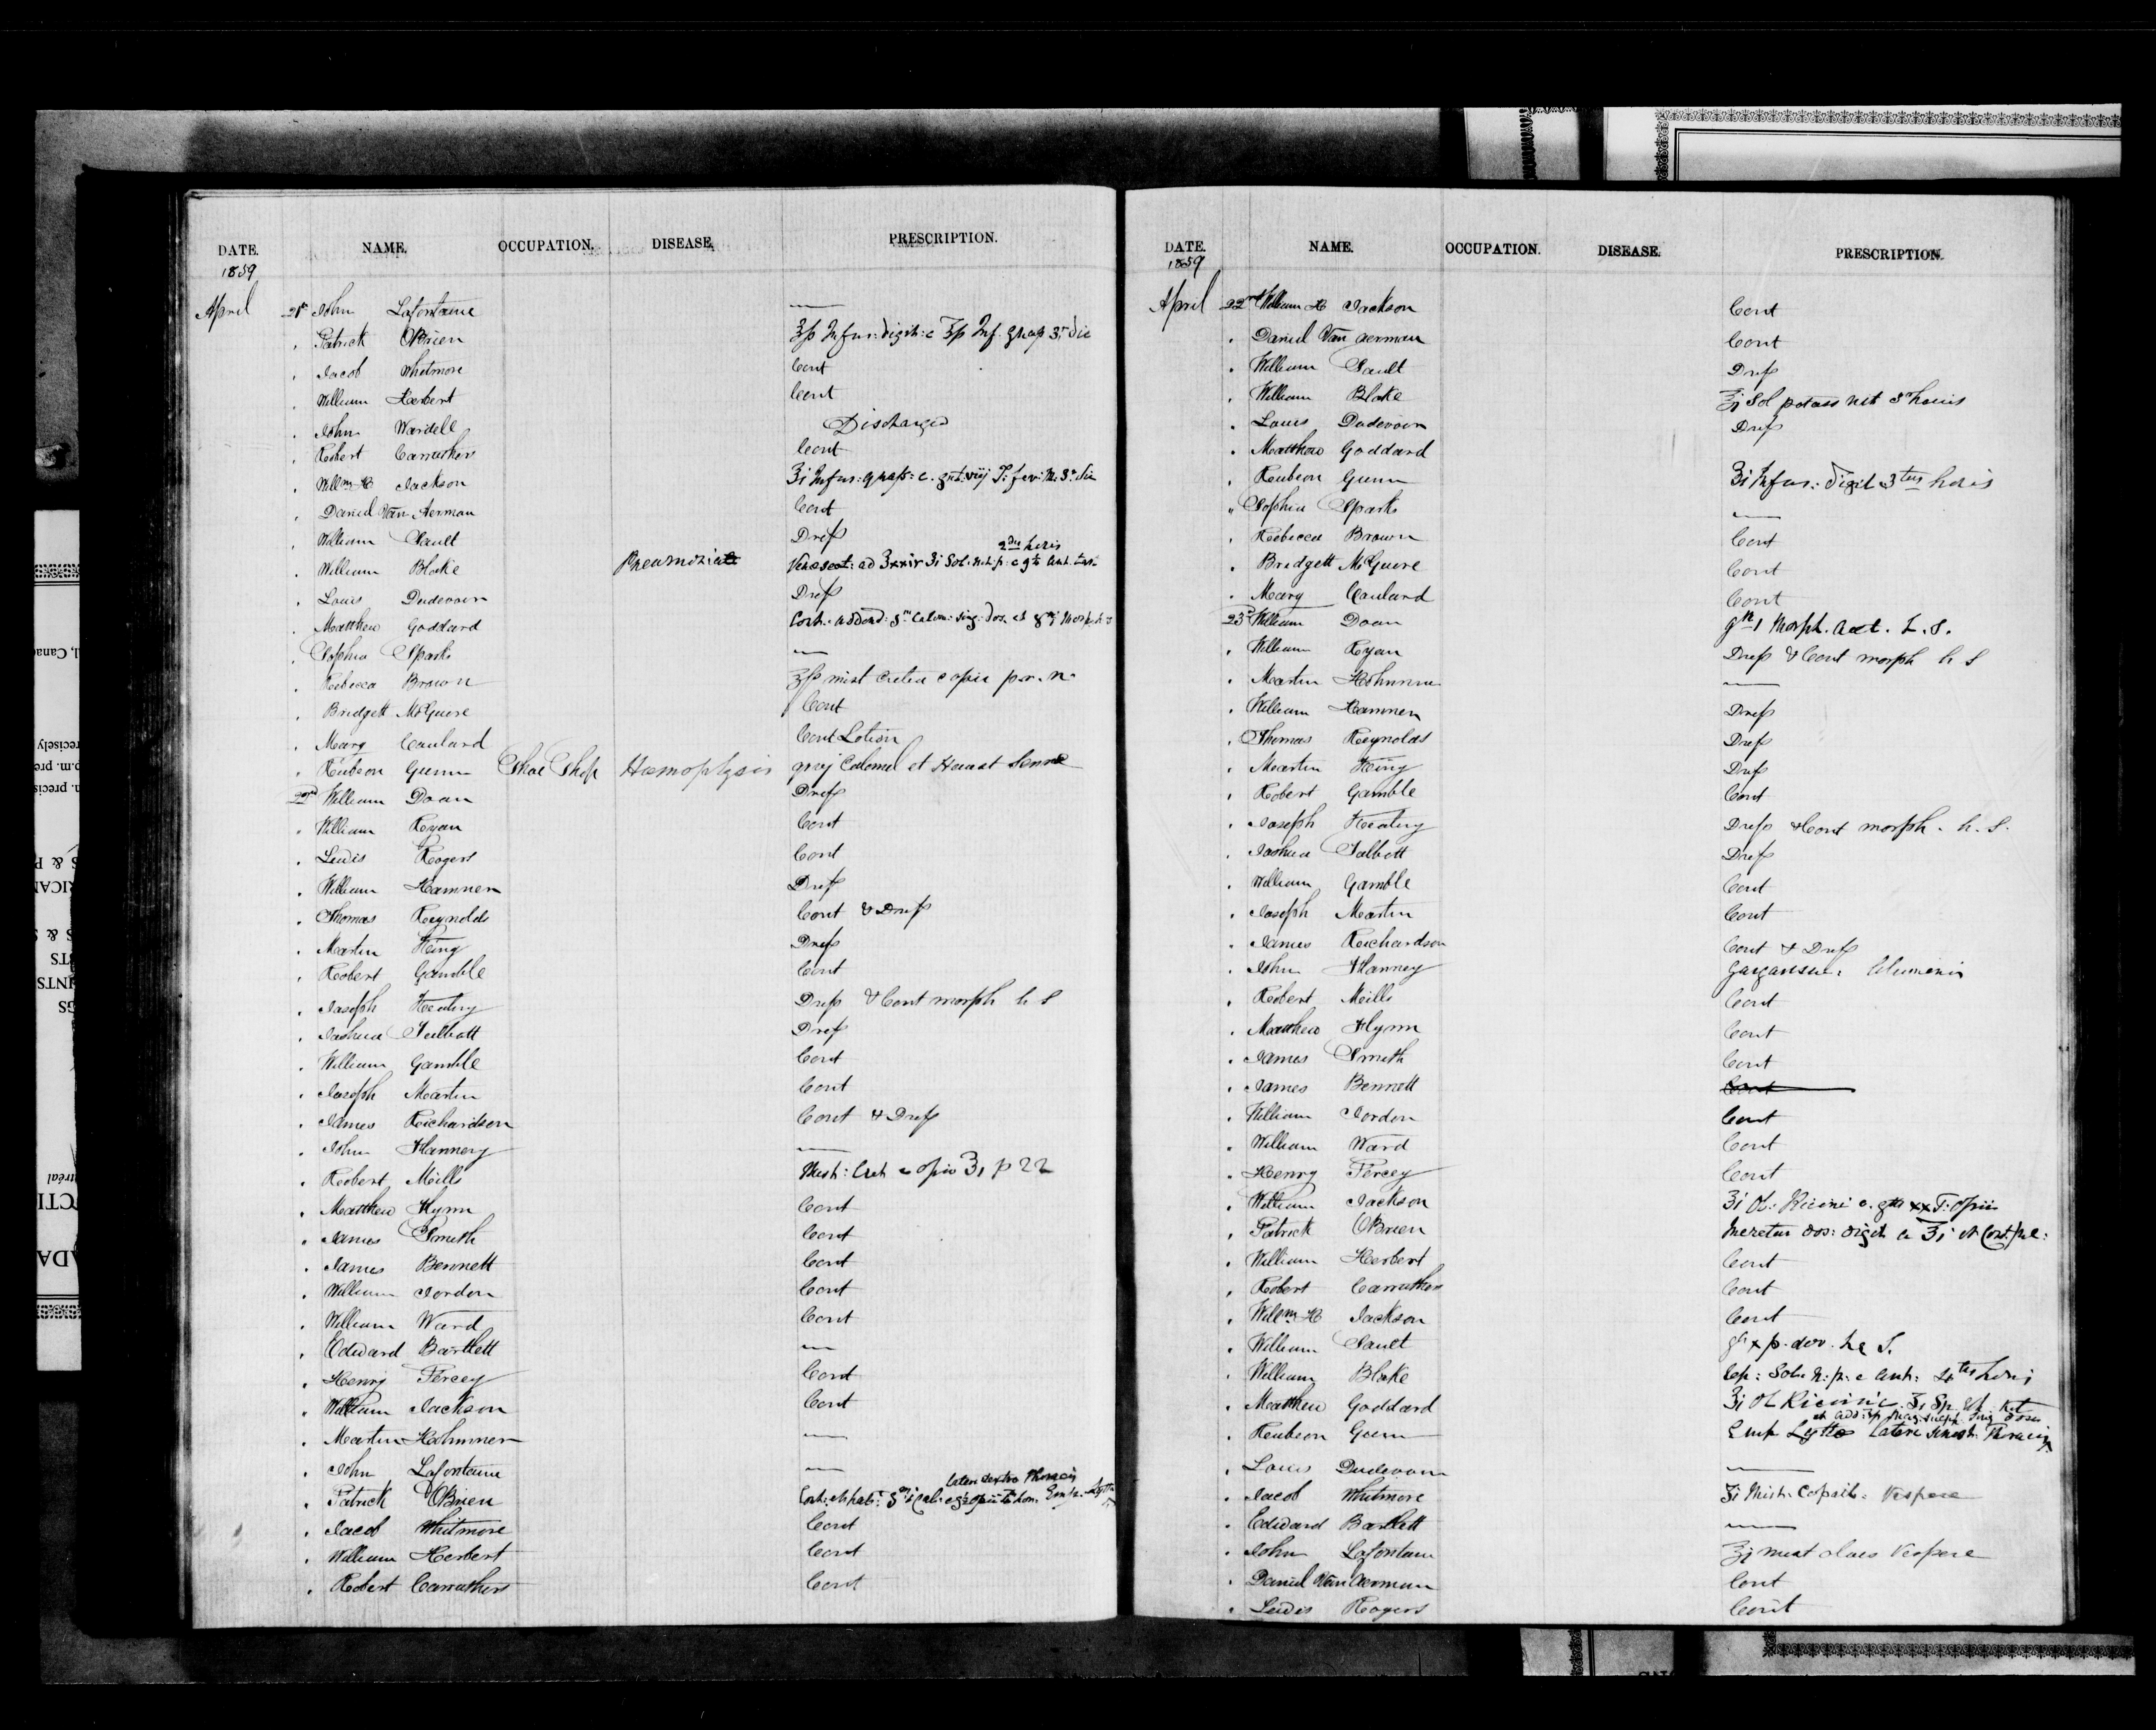 DATE. NAME. OCCUPATION. DISEASE. PRESCRIPTION.
1859
April 21st John Lafontaine —
" Patrick OBrien ʒſs Infus: digit: c ʒſs Inf. quass 3r die
" Jacob Whitmore Cont
" William Herbert Cont
" John Wardell Discharged
" Robert Carruthers Cont
" Willm H Jackson ʒi Infus: quass: c. gtt. viij T: ferr: M. 3r die
" Daniel Van Aerman Cont
" William Sault Dress
2dis horis
" William Blake Pneumonia Venesect: ad ʒxxiv ʒi Sol. nit. p. c gr Ant. tart
" Louis Dudevoir Dress
" Matthew Goddard Cont: addend: Calom: sing. dos. et Morph
" Sophia Sparks —
" Rebecca Brown ʒſs mist Cretea c opii p.r.n.
" Bridgett McGuire Cont
" Mary Couland Cont Lotion
" Reubeon Gunn Shoe Shop Hæmoptysis Calomel et Haust Sennæ
22d William Doan Dress
" William Ryan Cont
" Lewis Rogers Cont
" William Hamnen Dress
" Thomas Reynolds Cont & Dress
" Martin King Dress
" Robert Gamble Cont
" Joseph Keatiny Dress & Cont morph h S
" Joshua Talbott Dress
" William Gamble Cont
" Joseph Martin Cont
" James Richardson Cont & Dress
" John Flannery —
" Robert Mills Mist: Cret c opio ʒi p 22
" Matthew Flynn Cont
" James Smith Cont
" James Bennett Cont
" William Jordon Cont
" William Ward Cont
" Edward Bartlett —
" Henry Percey Cont
" William Jackson Cont
" Martin Hohnmen —
" John Lafontaine —
lateri dextro thoracis
" Patrick OBrien Cont: Emp. Lytta
" Jacob Whitmore Cont
" William Herbert Cont
" Robert Carruthers Cont
DATE. NAME. OCCUPATION. DISEASE. PRESCRIPTION.
1859
April 22nd William H Jackson Cont
" Daniel Van Aerman Cont
" William Sault Dress
" William Blake ʒi Sol potass nit 3r horis
" Louis Dudevoir Dress
" Matthew Goddard
" Reubeon Gunn ʒi Infus: digit 3tiis horis
" Sophia Sparks —
" Rebecca Brown Cont
" Bridgett McGuire Cont
" Mary Couland Cont
23d William Doan gr 1 Morph. Acet. h. S.
" William Ryan Dress & Cont morph h S
" Martin Hohnmen —
" William Hamnen Dress
" Thomas Reynolds Dress
" Martin King Dress
" Robert Gamble Cont
" Joseph Keatiny Dress & Cont morph. h. S.
" Joshua Talbott Dress
" William Gamble Cont
" Joseph Martin Cont
" James Richardson Cont & Dress
" John Flannery Gargarism: Aluminis
" Robert Mills Cont
" Matthew Flynn Cont
" James Smith Cont
" James Bennett Cont
" William Jordon Cont
" William Ward Cont
" Henry Percey Cont
" William Jackson ʒi Ol: Ricini c. gtt xx T: Opii
" Patrick OBrien dos: digit
" William Herbert Cont
" Robert Carruthers Cont
" Willm H Jackson Cont
" William Sault gr x p. dov. h. S.
" William Blake Rep: Solu n: p: c Ant: 4tis horis
" Matthew Goddard ʒi Ol Ricini c. ʒi Sp. Æt Nit
" Reubeon Gunn Emp Lyttæ Lateri Sinist: Thoracis
" Louis Dudevoir —
" Jacob Whitmore ʒi Mist: Copaib: Vespere
" Edward Bartlett —
" John Lafontaine ʒi mist Vespere
" Daniel Van Aerman Cont
" Lewis Rogers Cont